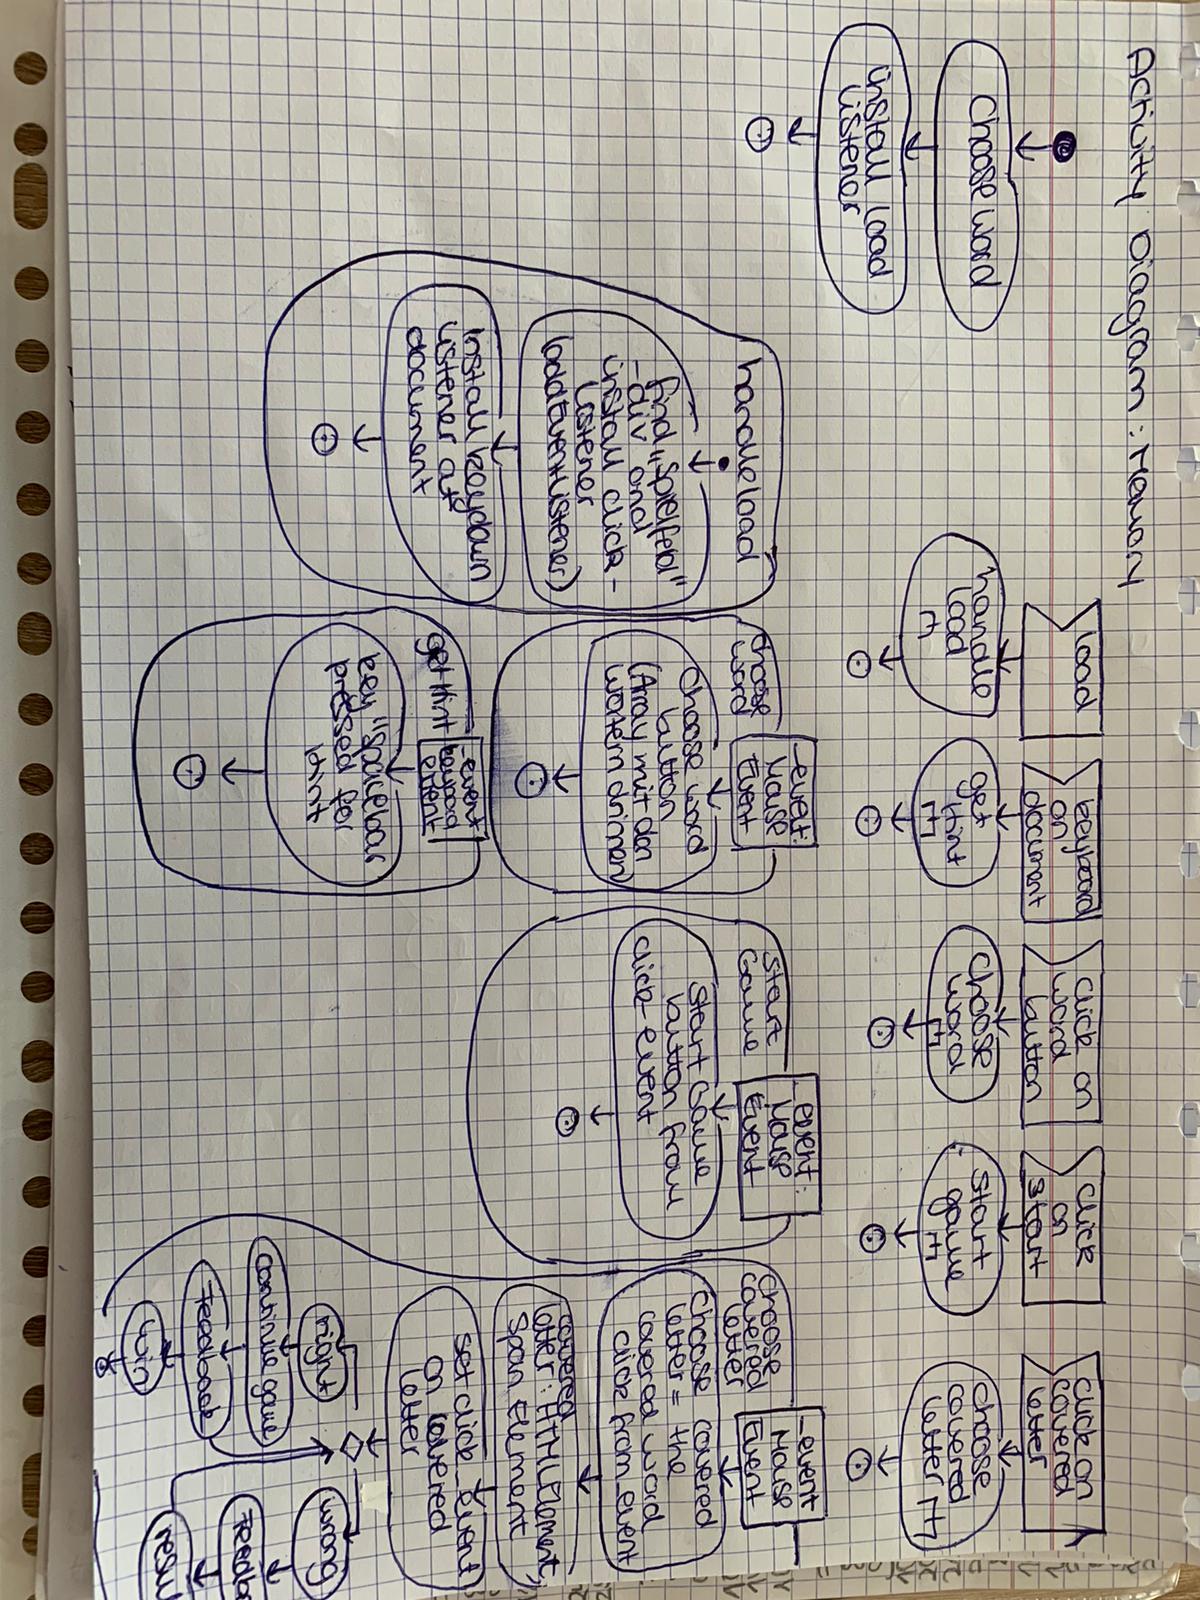 Activity Diagram: Memory
Choose word
install load
listener
load
handle
load
keyboard
on
document
get
Hint
click on
word
button
Choose
word
click
on
start
Start
game
click on
covered
letter
choose
covered
letter
handleload
find "Spielfeld"
-div and
install click-
listener
(addEventListener)
install keydown
listener at
document
choose
word
-event:
Mouse
Event
Choose word
button
(Array mit den
Wörtern drinnen)
get Hint
-event
keyboard
event
key "Spacebar
pressed for
Hint
Start
Game
-event:
Mouse
Event
Start Game
button from
click-event
Choose
covered
letter
-event
Mouse
Event
Choose covered
letter = the
covered word
click from_event
covered
letter: HTMLElement
Span Element
set click_event
on covered
letter
right
continue game
Feedback
win
wrong
Feedba
resu